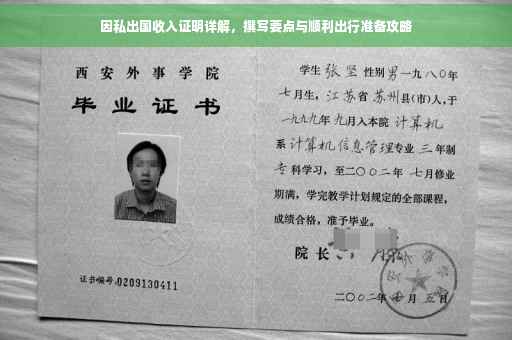 因私出国收入证明详解，撰写要点与顺利出行准备攻略
西安外事学院
毕业证书
证书编号:0209130411
学生张坚性别男一九八〇年
七月生，江苏省苏州县(市)人，于
一九九九年九月入本院计算机
系计算机信息管理专业三年制
专科学习，至二〇〇二年七月修业
期满，学完教学计划规定的全部课程，
成绩合格，准予毕业。
院长
二〇〇二年七月五日